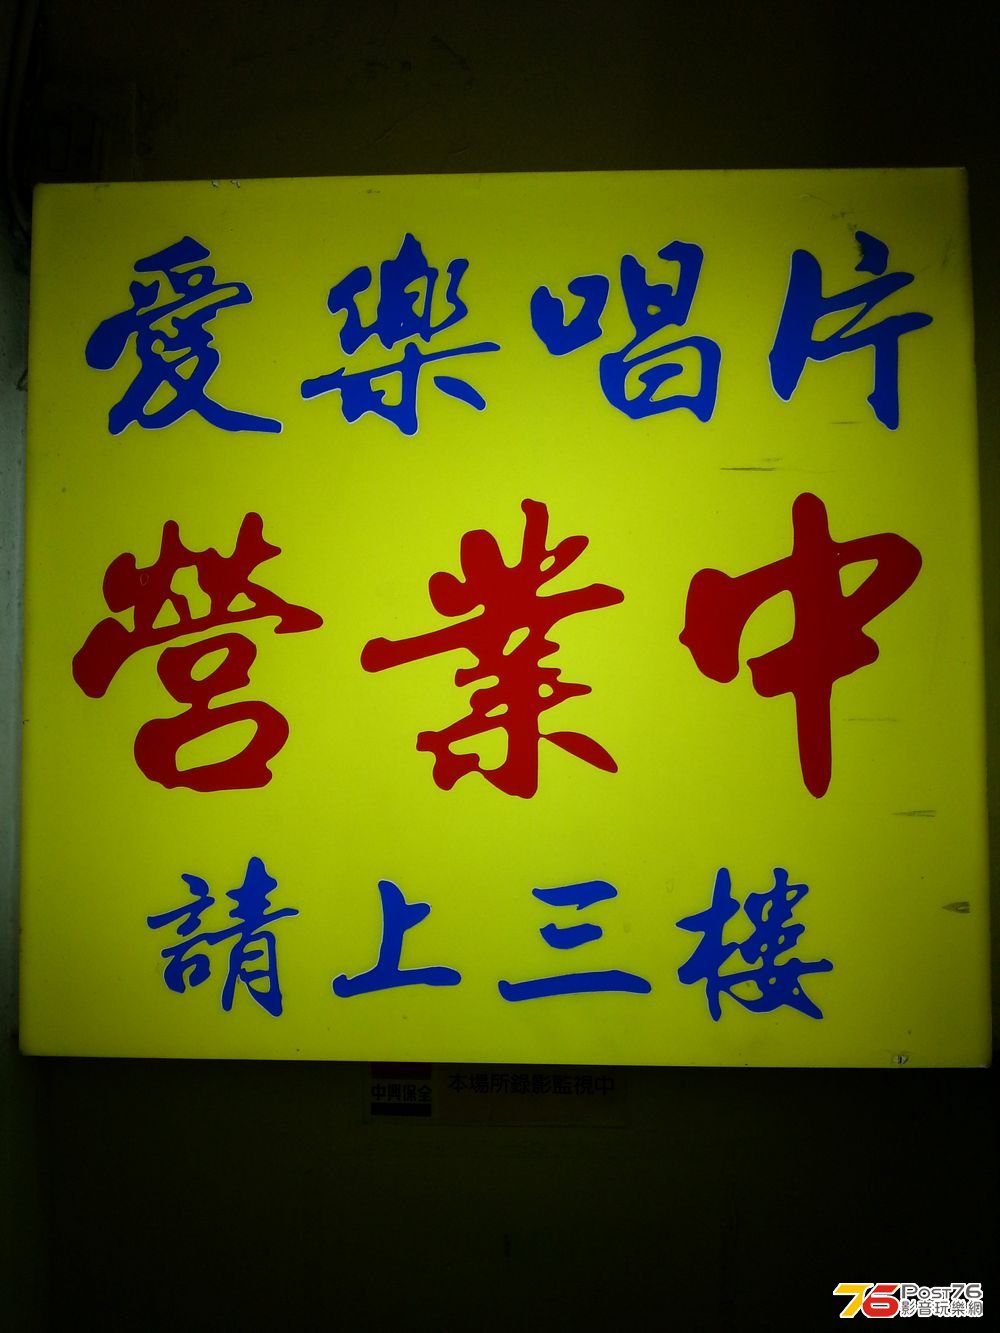 愛樂唱片
營業中
請上三樓
中興保全
本場所錄影監視中
76 Post76
影音玩樂網